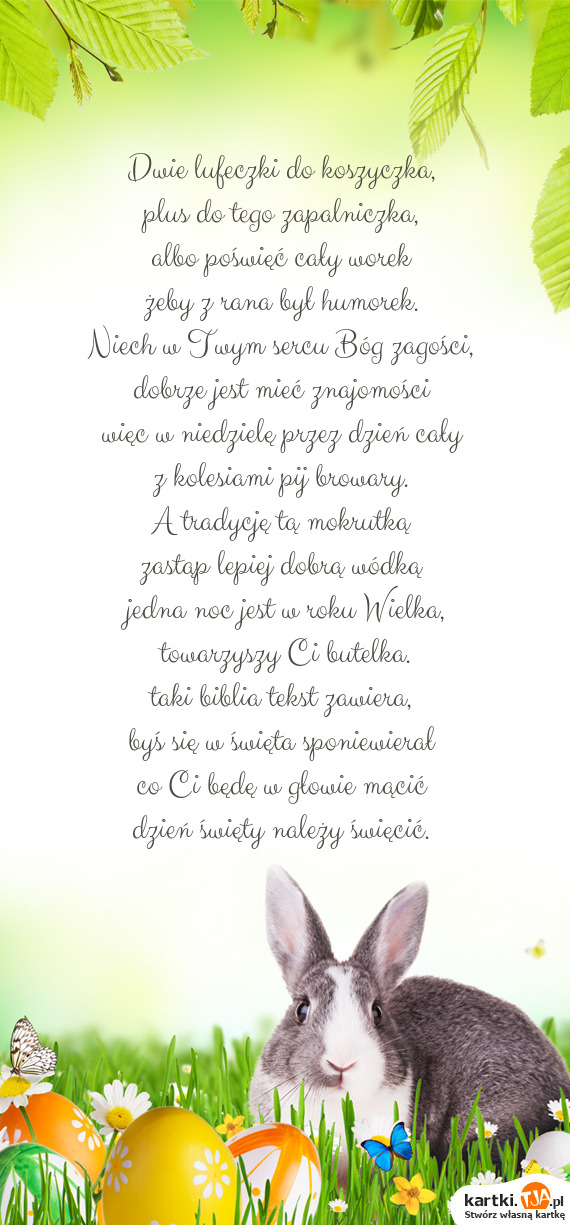 Dwie lufeczki do koszyczka,
plus do tego zapalniczka,
albo poświęć cały worek
żeby z rana był humorek.
Niech w Twym sercu Bóg zagości,
dobrze jest mieć znajomości
więc w niedzielę przez dzień cały
z kolesiami pij browary.
A tradycję tą mokrutką
zastąp lepiej dobrą wódką
jedna noc jest w roku Wielka,
towarzyszy Ci butelka.
taki biblia tekst zawiera,
byś się w święta sponiewierał
co Ci będę w głowie mącić
dzień święty należy święcić.
kartki.TJA.pl
Stwórz własną kartkę